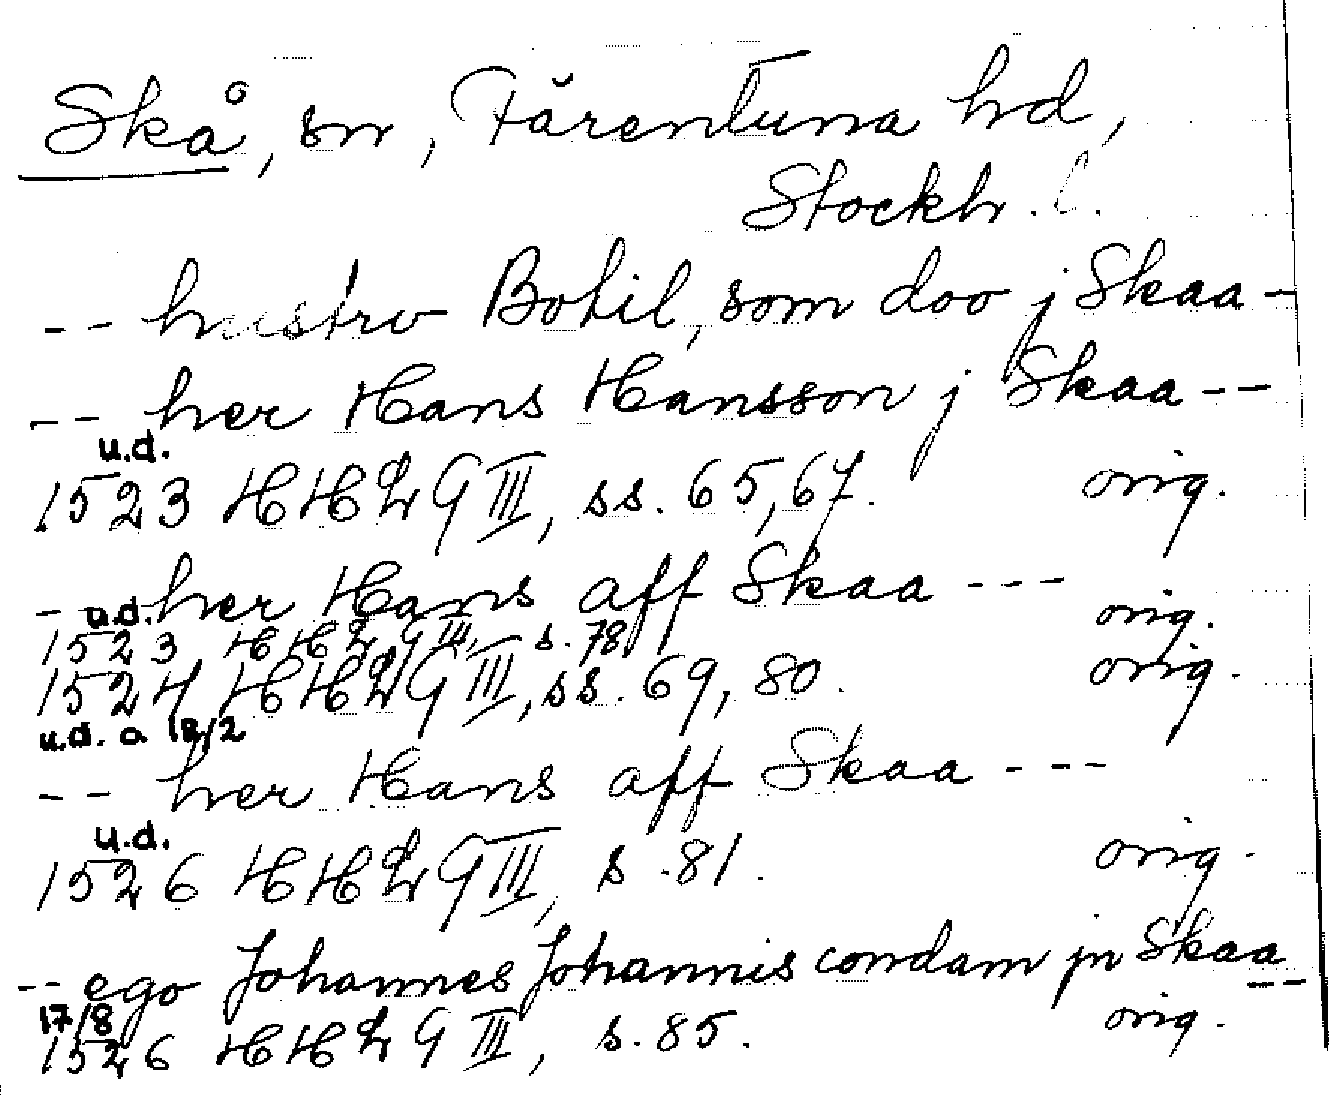 Skå, sn, Färentuna hd,
Stockh. l.
-- hustrv Botil, som doo j Skaa -
-- her Hans Hansson j Skaa --
u.d.
1523 HH2 G III, ss. 65, 67. orig.
-- her Hans aff Skaa ---
u.d.
1523 HH2 G III, s. 78 orig.
1524 HH2 G III, ss. 69, 80. orig.
u.d. o 18/2
-- her Hans aff Skaa ---
u.d.
1526 HH2 G III, s. 81. orig.
-- ego Johannes Johannis condam jn Skaa --
17/8
1526 HH2 G III, s. 85. orig.